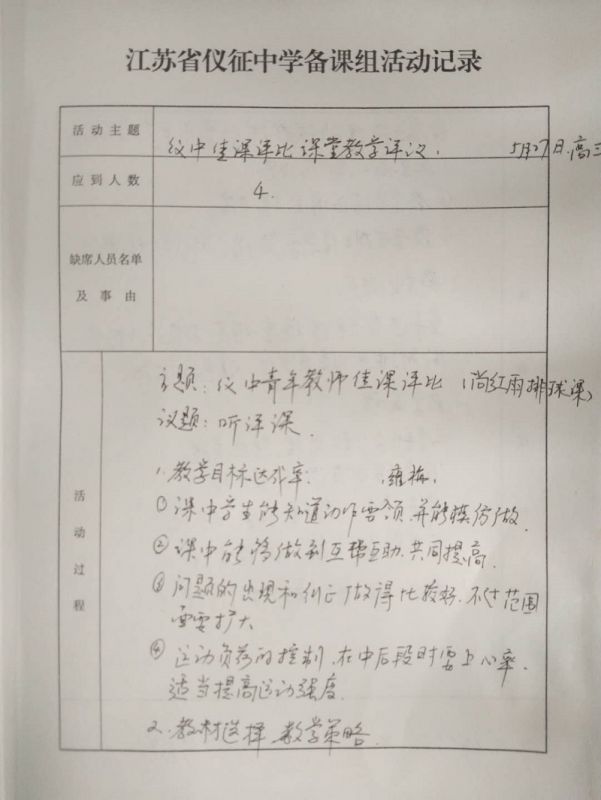 江苏省仪征中学备课组活动记录
活动主题
仪中佳课评比课堂教学评议. 5月27日.高三
应到人数
4.
缺席人员名单
及事由
活动过程
主题:仪中青年教师佳课评比(尚红雨排球课)
议题:听评课.
1.教学目标达水率:
①课中学生能知道动作要领.并能模仿做.
②课中能够做到互帮互助.共同提高.
③问题的出现和纠正做得比较好.不过范围
需要扩大
④运动负荷的控制.在中后段时要上心率.
适当提高运动强度.
2.教材选择 教学策略.